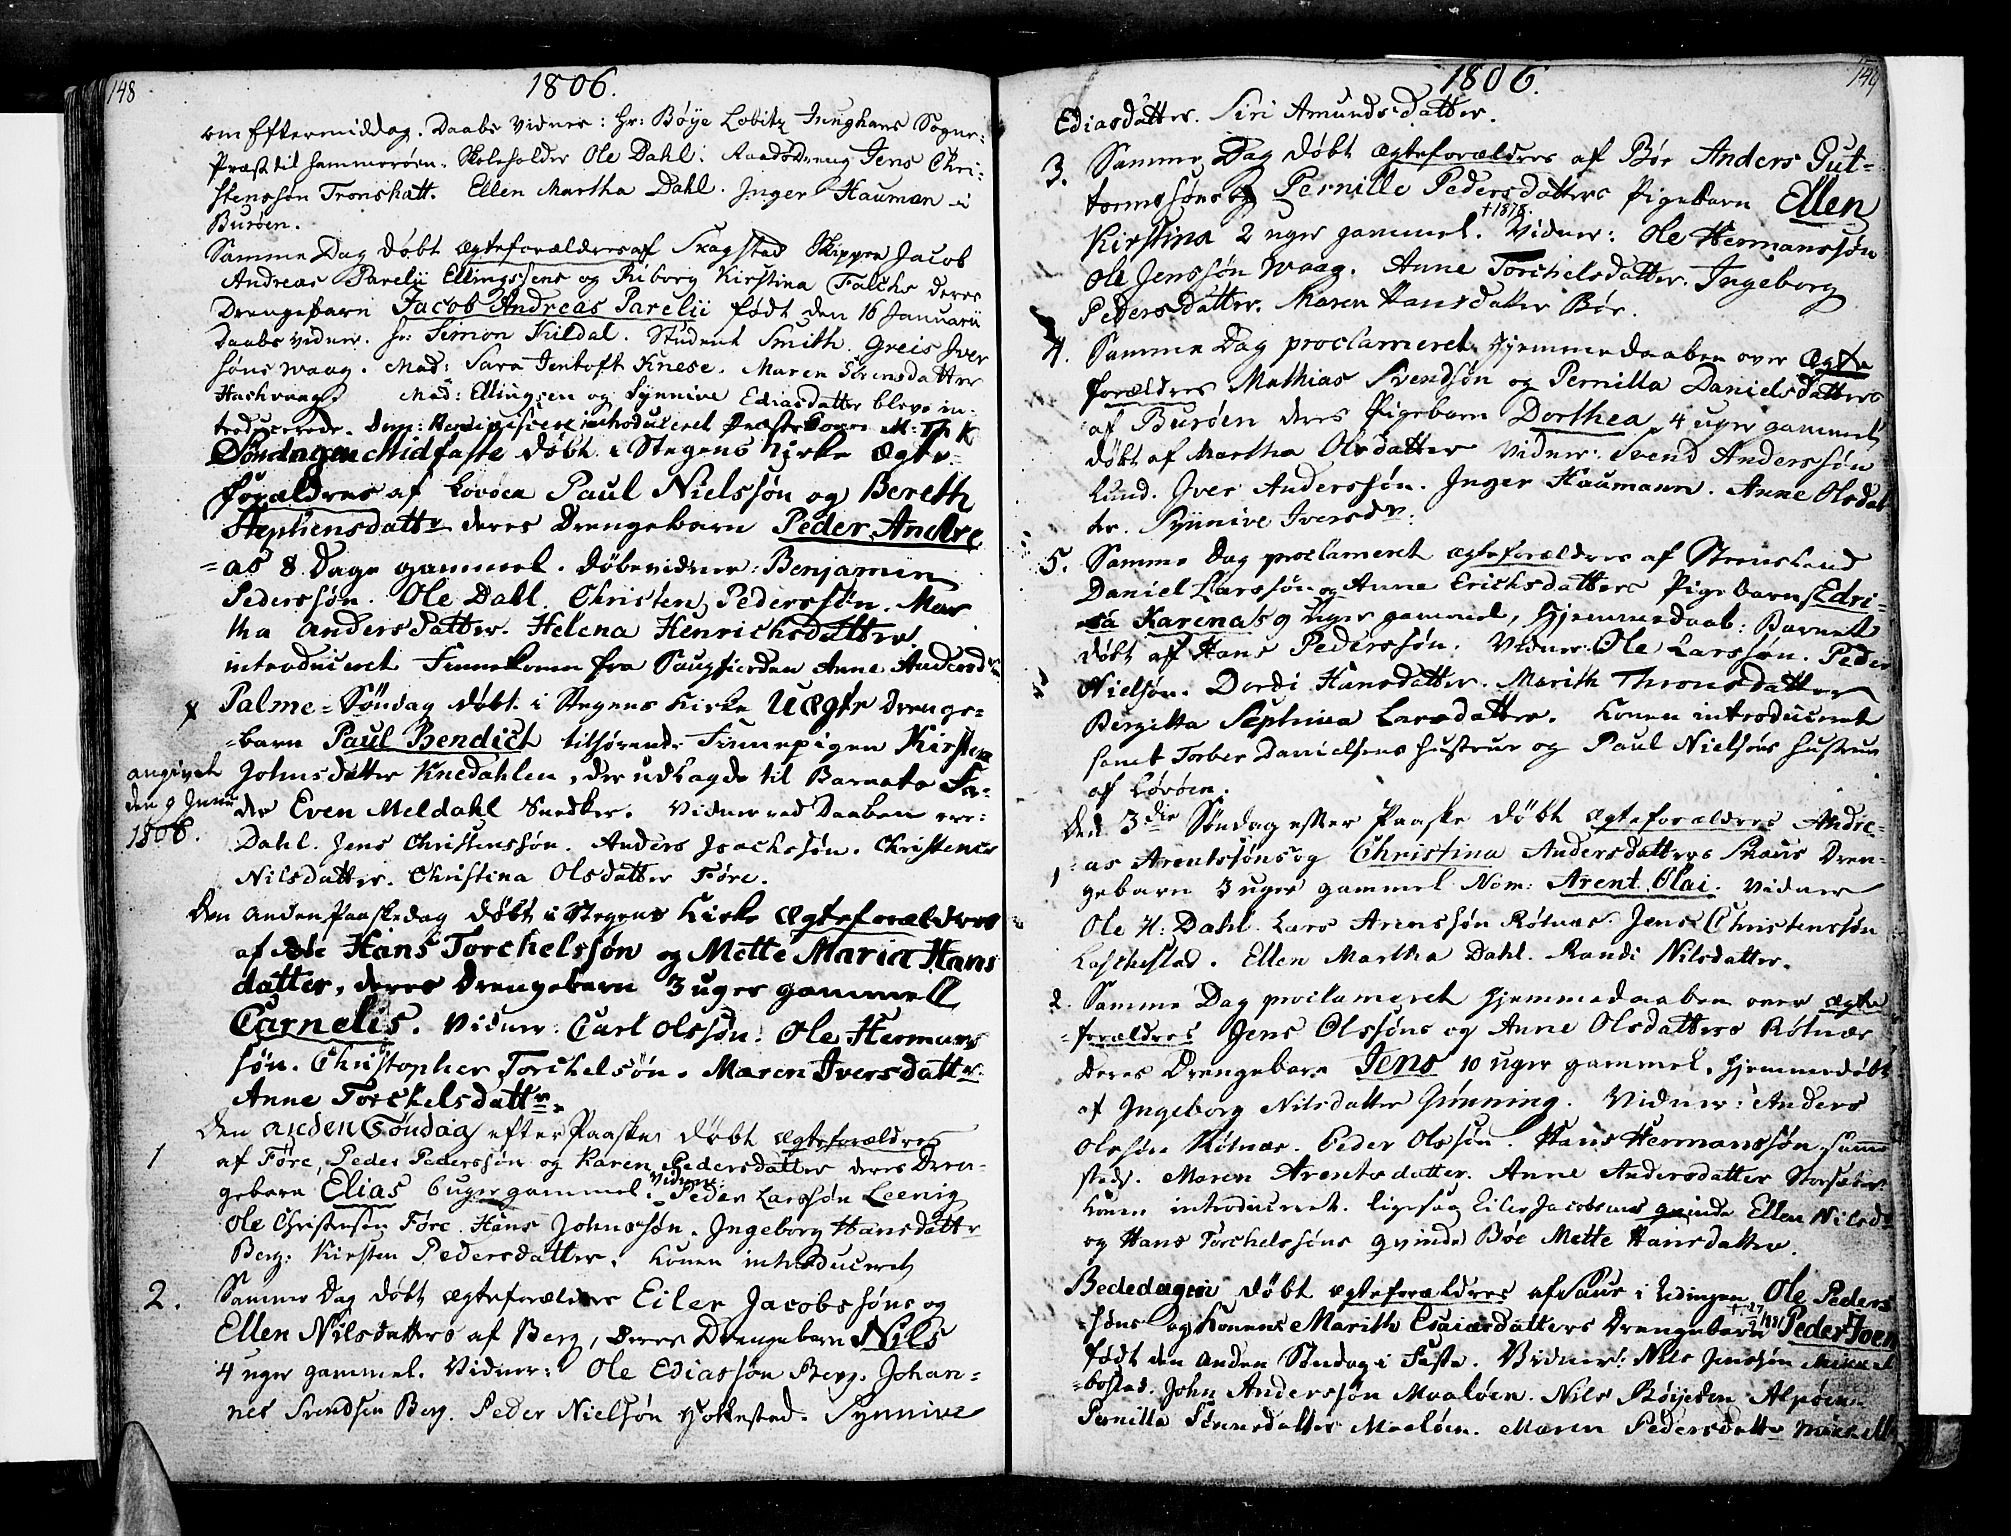 148
1806.
om Eftermiddag. Daabs Vidner: Hr: Bøye Lobitz Junghans Sogne-
Præst til Hammerøen. Skoleholder Ole Dahl. Jens Chri-
stenssøn Tronshatt. Ellen Martha Dahl. Inger Hauman i
Burøen.
Samme Dag døbt Ægteforældres af Skagstad Skipper Jacob
Andreas Parelii Ellingssens og Riborg Kirstina Falchs deres
Drengebarn Jacob Andreas Parelii født den 16 Januarii
Daabs vidner. Hr: Simon Kildal. Student Smith. Greis Iver
søns Waag. Mad: Sara Jentoft Knese. Maren Sørensdatter
Mad: Ellingsen og Synnive Ediasdatter bleve in-
troducerede. Dom: Reminiscere introduceret Præstekonen M: Th K
Søndagen Midfaste døbt i Stegens Kirke Ægte-
forældres af Lovøen Paul Nielssøn og Bereth
Stephensdattr deres Drengebarn Peder Andre
=as 8 Dage gammel. Døbevidner: Benjamin
Pederssøn. Ole Dahl. Christen Pederssøn. Mar
tha Andersdatter. Helena Henrichsdatter
introduceret Finnekonen fra Saugfiorden Anne Andersdr
Palme=Søndag døbt i Stegens Kirke Uægte Drenge-
=barn Paul Bendict tilhørende Finnepigen Kirsten
angivet
den 9 Junii
1806.
Johnsdatter Knedahlen, der udlagde til Barnets Fa-
der Even Meldahl Snedker. Vidner ved Daaben ere:
Dahl. Jens Christenssøn. Anders Isachssøn. Christence
Nilsdatter. Christina Olsdatter Føre.
Den anden Paaskedag døbt i Stegens Kirke Ægteforældres
af Bøe Hans Torchelssøn og Mette Maria Hans
datter, deres Drengebarn 3 uger gammell
Carnelis. Vidner: Carl Olssøn. Ole Hermans
søn. Christopher Torchelsøn. Maren Iversdattr.
Anne Torchelsdattr.
Den anden Søndag efter Paaske døbt Ægteforældres
1
af Føre, Peder Pederssøn og Karen Pedersdatter deres Dren-
gebarn Elias 6 uger gammel. Vidner: Peder Larssøn Leenig
Ole Christensen Føre. Hans Johnssøn. Ingeborg Hansdattr
Berg: Kirsten Pedersdatter. Konen introduceret
2.
Samme Dag døbt Ægteforældres Eiler Jacobssøns og
Ellen Nilsdatters af Berg, Deres Drengebarn Nils
4 uger gammel. Vidner: Ole Ediassøn Berg. Johan-
nes Svendsen Berg. Peder Nielsøn Holkestad. Synnive
149
1806.
Ediasdatter. Siri Amundsdatter.
3. Samme Dag døbt Ægteforældres af Bøe Anders Gut-
tormssøns og Pernille Pedersdatters Pigebarn Ellen
†1878.
Kirstina 2 uger gammel. Vidner: Ole Hermanssøn
Ole Jenssøn Waag. Anne Torchelsdatter. Ingeborg
Pedersdatter. Maren Hansdatter Bøe.
4. Samme Dag proclameret Hjemmedaaben over Ægte
forældres Mathias Svendsøn og Pernilla Danielsdatters
af Burøen deres Pigebarn Dorthea 4 uger gammel
døbt af Martha Olsdatter Vidner: Svend Anderssøn
Lund. Iver Anderssøn. Inger Haumann. Anne Olsdat
ter. Synnive Iversdr.
5. Samme Dag proclameret Ægteforældres af
Daniel Larssøn og Anne Erichsdatters Pigebarn Edri-
sa Karena 9 uger gammel, Hjemmedaab: Barnet
døbt af Hans Pederssøn. Vidner: Ole Larsson. Peder
Nielsøn. Dordi Hansdatter. Marith Thronsdatter
Bergitta Sephina Larsdatter. Konen introduceret
samt Torber Danielsens Hustrue og Paul Nielsøns Hustrue
af Løvøen.
Den 3die Søndag efter Paaske døbt Ægteforældres Andre-
1
as Arentssøns og Christina Andersdatters Skaus Dren-
gebarn 3 uger gammel Nom: Arent Olai. Vidner
Ole H: Dahl. Lars Arenssøn Røtnæs. Jens Christenssøn
Laschestad. Ellen Martha Dahl. Randi Nilsdatter.
2. Samme Dag proclameret Hjemmedaaben over Ægte
=forældres Jens Olssøns og Anne Olsdatters Røtnæs
deres Drengebarn Jens 10 uger gammel. Hjemmedøbt
af Ingeborg Nilsdatter Grønning. Vidner: Anders
Olssøn Røtnæs. Peder Olssøn. Hans Hermanssøn Samme
steds. Maren Arentsdatter. Anne Andersdatter
Konen introduceret. ligesaa Eiler Jacobsens qvinde Ellen Nilsdr
og Hans Torchelssøns qvinde Bøe Mette Hansdatter.
Bededagen døbt Ægteforældres af Saur i Ledingen Ole Peders
=søns og Konens Marith Esaiasdatters Drengebarn Peder Joen
født den anden Søndag i Faste. Vidner: Nils Jenssøn
=bostad. John Anderssøn Maaløen. Nils
Pernilla Maaløen. Maren Pedersdattr